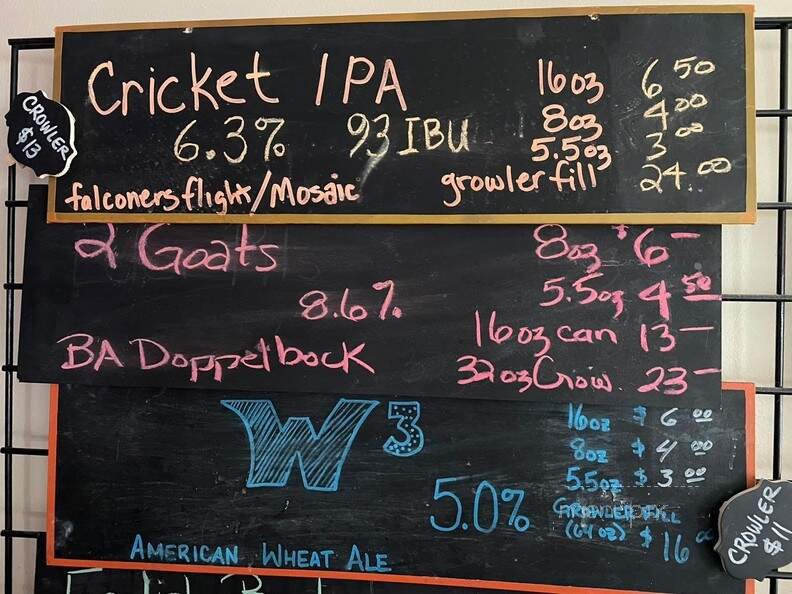 Cricket IPA 16oz 6 50
6.3% 93 IBU 8oz 4 00
5.5oz 3 00
falconersflight/Mosaic growler fill 24.00
CROWLER
$13
2 Goats 8oz $6 —
8.6% 5.5oz 4 50
16oz can 13 —
BA Doppelbock 32oz Crow. 23 —
W3 16oz $ 6 00
8oz $ 4 00
5.5oz $ 3 00
5.0% GROWLER FILL
(64 oz) $ 16 00
AMERICAN WHEAT ALE
CROWLER
$11